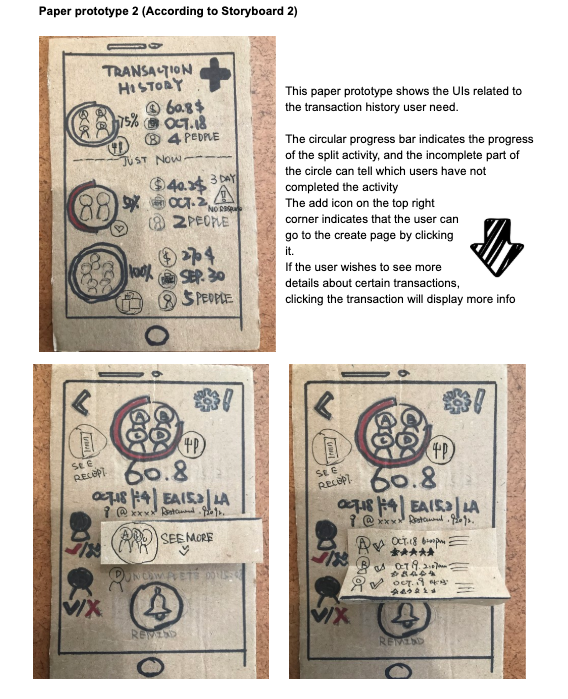 Paper prototype 2 (According to Storyboard 2)
TRANSACTION
HISTORY
75%
60.8$
OCT.18
4 PEOPLE
JUST NOW
50%
40.2$
3 DAY
OCT.2
2 PEOPLE
100%
270$
SEP.30
5 PEOPLE
This paper prototype shows the UIs related to
the transaction history user need.
The circular progress bar indicates the progress
of the split activity, and the incomplete part of
the circle can tell which users have not
completed the activity
The add icon on the top right
corner indicates that the user can
go to the create page by clicking
it.
If the user wishes to see more
details about certain transactions,
clicking the transaction will display more info
A B
C D
SEE
RECEIPT
60.8
OCT.18
EA15.2
@ xxxx Restaurant
SEE MORE
REMIND
A B
C D
SEE
RECEIPT
60.8
OCT.18
EA15.2
@ xxxx Restaurant
A OCT.18 6:00pm
B OCT.19
C OCT.19
REMIND